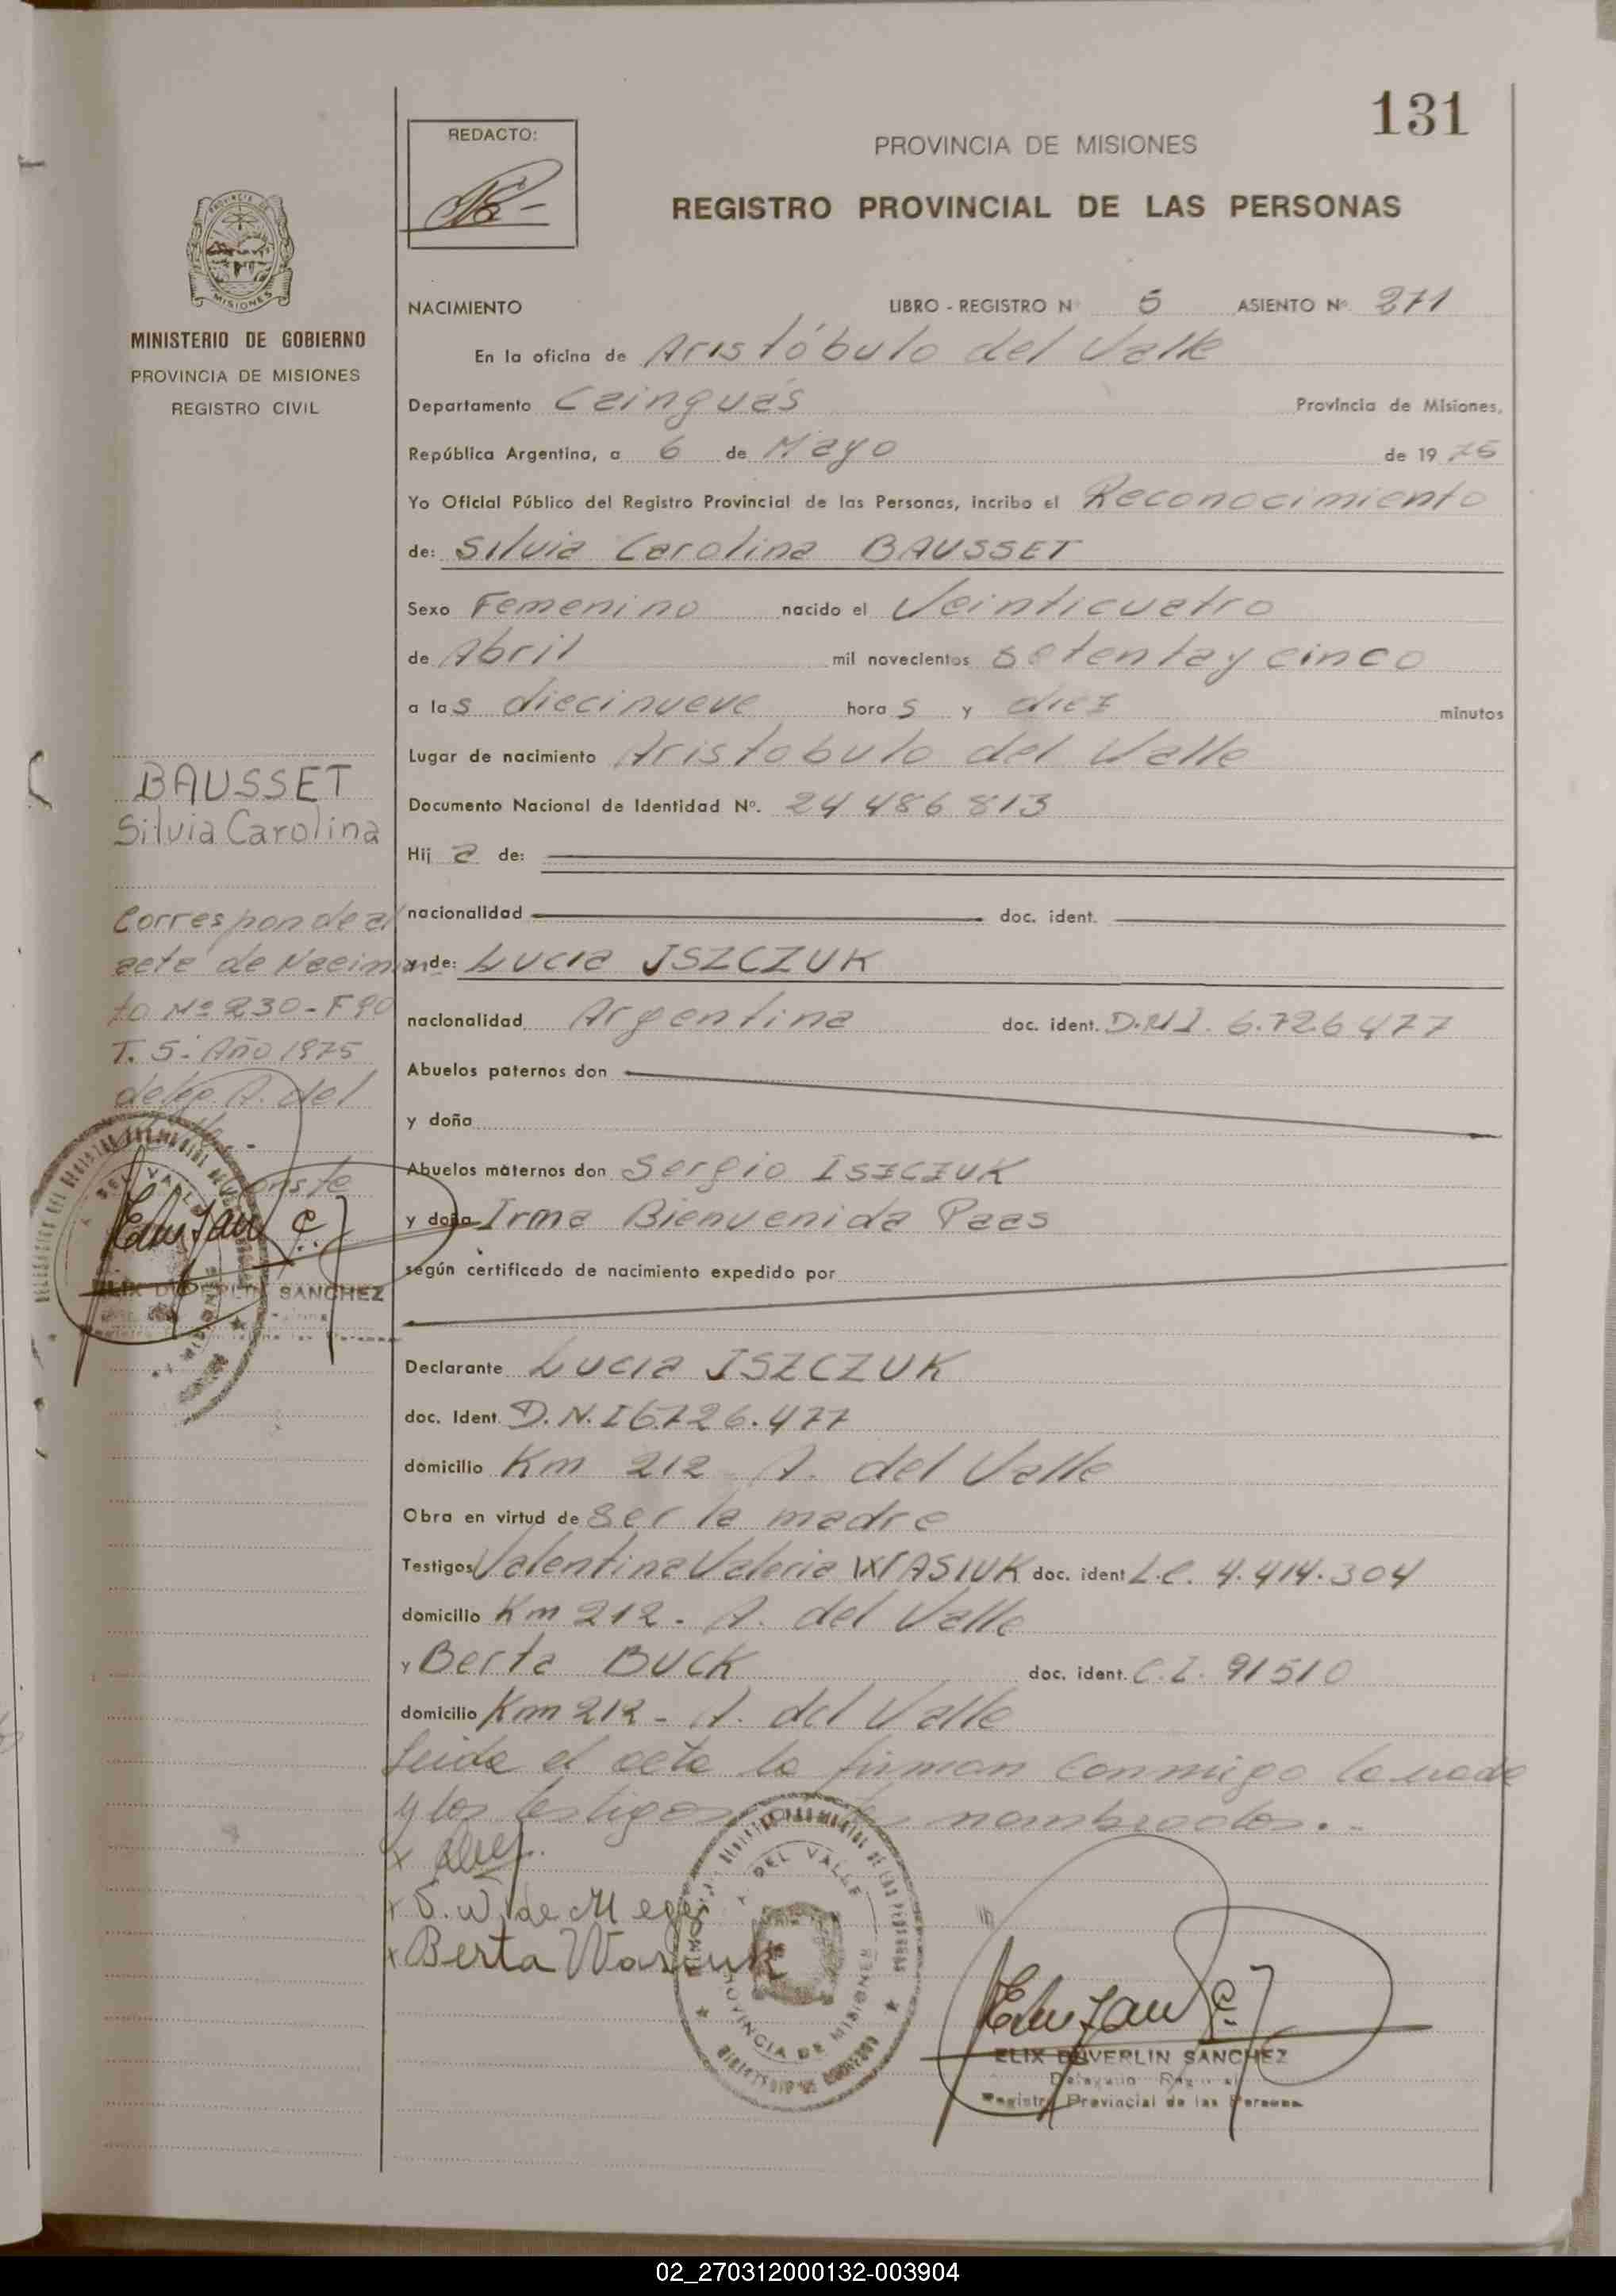 131
REDACTO:
PROVINCIA DE MISIONES
REGISTRO PROVINCIAL DE LAS PERSONAS
MISIONES
MINISTERIO DE GOBIERNO
PROVINCIA DE MISIONES
REGISTRO CIVIL
NACIMIENTO LIBRO - REGISTRO Nº 5 ASIENTO Nº. 271
En la oficina de Aristóbulo del Valle
Departamento Cainguás Provincia de Misiones,
República Argentina, a 6 de Mayo de 19 75
Yo Oficial Público del Registro Provincial de las Personas, incribo el Reconocimiento
de: Silvia Carolina BAUSSET
Sexo Femenino nacido el Veinticuatro
de Abril mil novecientos setenta y cinco
a las diecinueve horas y diez minutos
Lugar de nacimiento Aristobulo del Valle
Documento Nacional de Identidad Nº. 24 486 813
Hija de:
nacionalidad doc. ident.
y de: Lucia ISZCZUK
nacionalidad Argentina doc. ident. D.N.I. 6.726.477
Abuelos paternos don
y doña
Abuelos maternos don Sergio ISZCZUK
y doña Irma Bienvenida Paas
según certificado de nacimiento expedido por
Declarante Lucia ISZCZUK
doc. Ident. D.N.I 6.726.477
domicilio Km 212 A. del Valle
Obra en virtud de ser la madre
Testigos Valentina Valeria WASIUK doc. ident L.C. 4.414.304
domicilio Km 212 - A. del Valle
y Berta BUCK doc. ident. C.I. 91510
domicilio Km 212 - A. del Valle
Leida el acta la firman conmigo la madre
y los testigos nombrados.-
BAUSSET
Silvia Carolina
Corresponde al
acta de Nacimien
to Nº 230 - F 90
T. 5 - Año 1975
deleg. A. del
Conste
DEL VALLE
ELIX DUVERLIN SANCHEZ
V. W. de M
Berta Wasiuk
A. DEL VALLE
PROVINCIA DE MISIONES
ELIX DUVERLIN SANCHEZ
Delegado Regional
Registro Provincial de las Personas
02_270312000132-003904